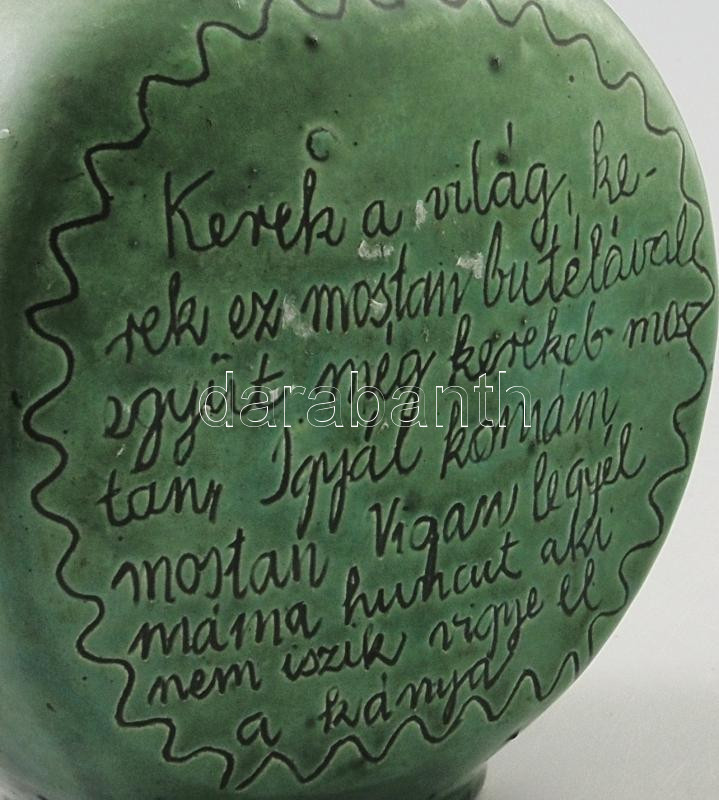 Kerek a világ, ke-
rek ez mostan butélával
együt még kerekeb mos
tan, Igyál komám
mostan Vigan legyél
máma huncut aki
nem iszik vigye el
a kánya
darabanth